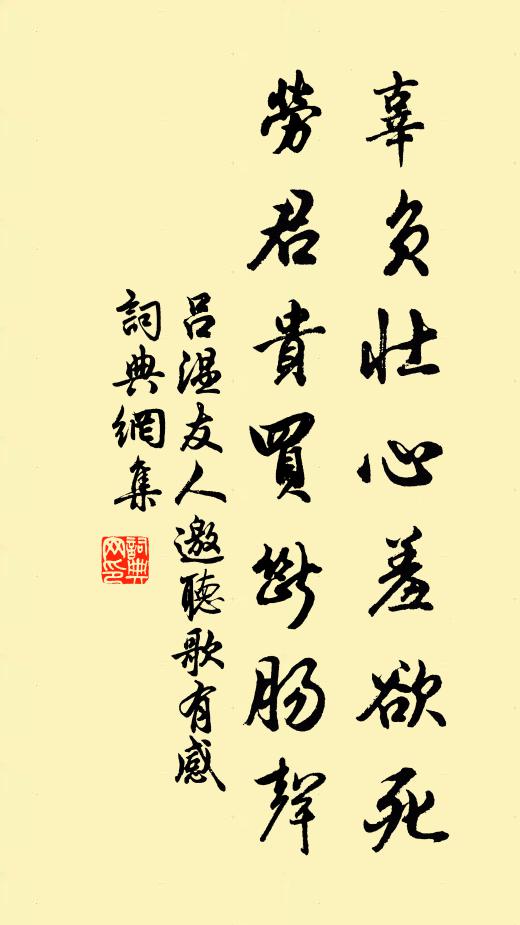 辜負壯心羞欲死
勞君貴買斷腸聲
呂溫友人邀聽歌有感
詞典網集
詞典网印